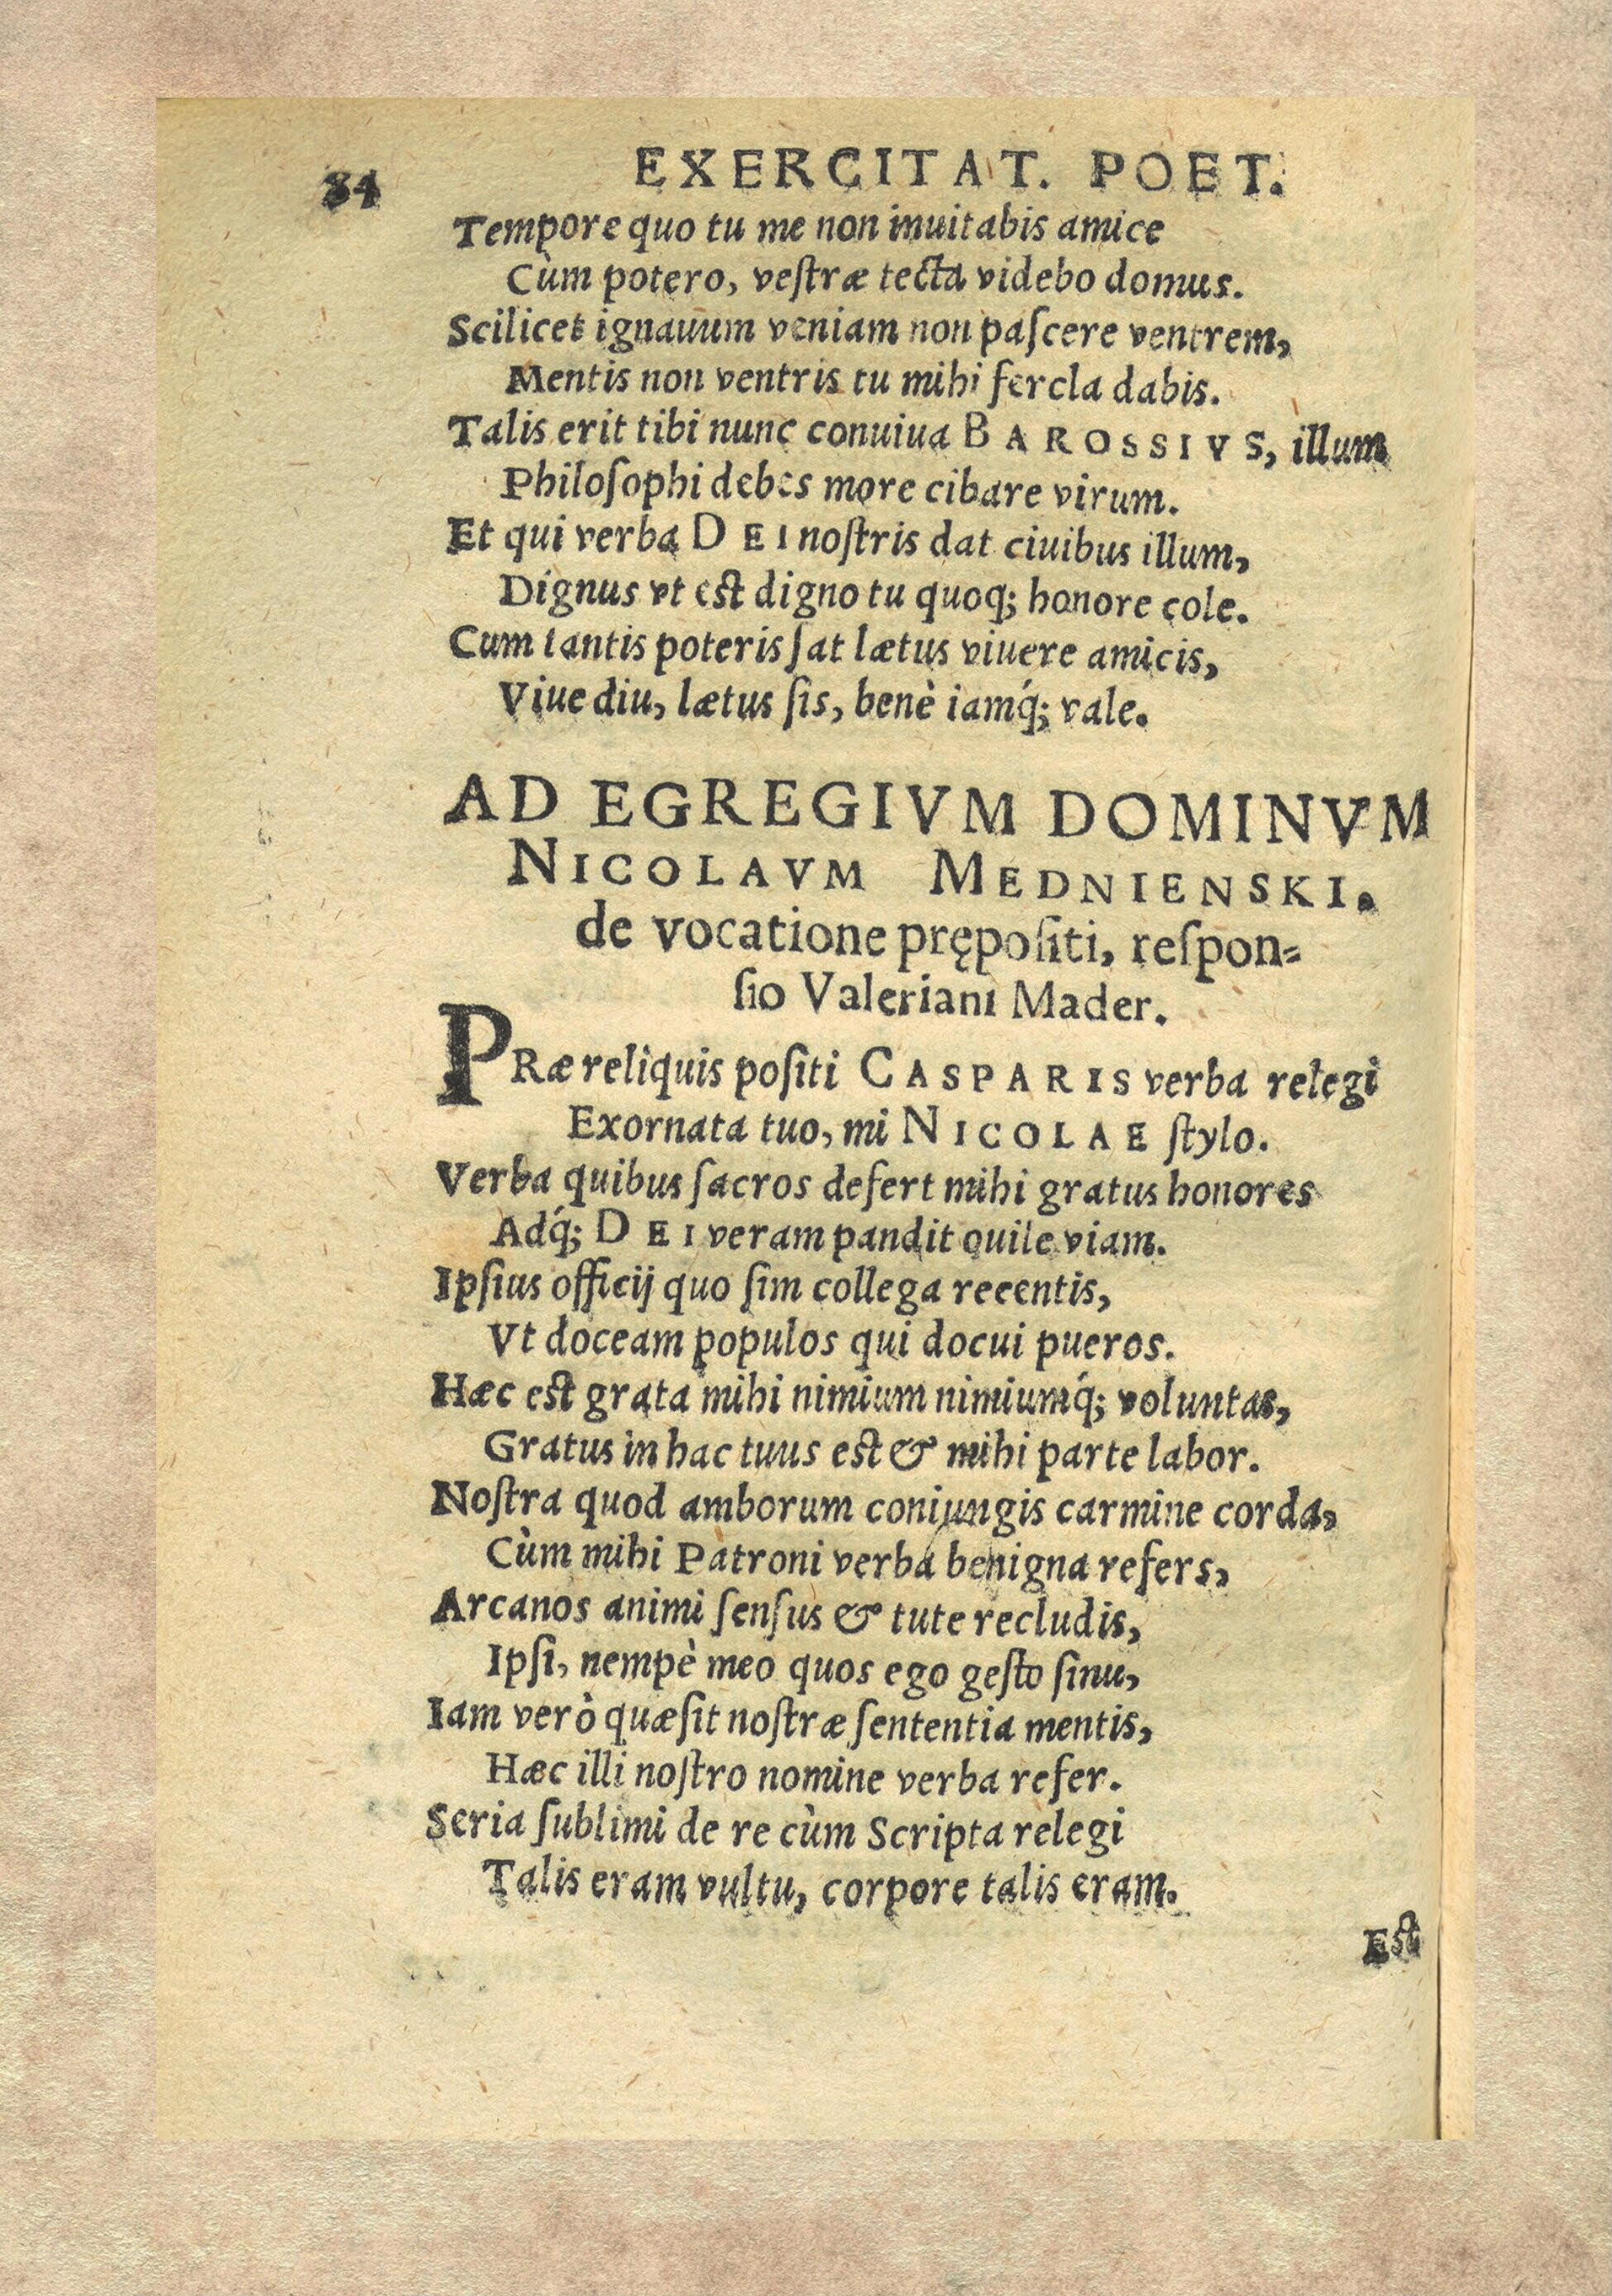 84 EXERCITAT. POET.
Tempore quo tu me non inuitabis amice
Cùm potero, veſtræ tecta videbo domus.
Scilicet ignauum veniam non paſcere ventrem,
Mentis non ventris tu mihi fercla dabis.
Talis erit tibi nunc conuiua BAROSSIVS, illum
Philoſophi debes more cibare virum.
Et qui verba DEI noſtris dat ciuibus illum,
Dignus vt eſt digno tu quoq; honore cole.
Cum tantis poteris ſat lætus viuere amicis,
Viue diu, lætus ſis, benè iamq́; vale.
AD EGREGIVM DOMINVM
NICOLAVM MEDNIENSKI.
de vocatione prępoſiti, reſpon-
ſio Valeriani Mader.
PRæ reliquis poſiti CASPARIS verba relegi
Exornata tuo, mi NICOLAE ſtylo.
Verba quibus ſacros defert mihi gratus honores
Adq́; DEI veram pandit ouile viam.
Ipſius officij quo ſim collega recentis,
Vt doceam populos qui docui pueros.
Hæc eſt grata mihi nimium nimiumq́; voluntas,
Gratus in hac tuus eſt & mihi parte labor.
Noſtra quod amborum coniungis carmine corda,
Cùm mihi Patroni verba benigna refers,
Arcanos animi ſenſus & tute recludis,
Ipſi, nempè meo quos ego geſto ſinu,
Iam verò quæ ſit noſtræ ſententia mentis,
Hæc illi noſtro nomine verba refer.
Seria ſublimi de re cùm Scripta relegi
Talis eram vultu, corpore talis eram.
Eſt